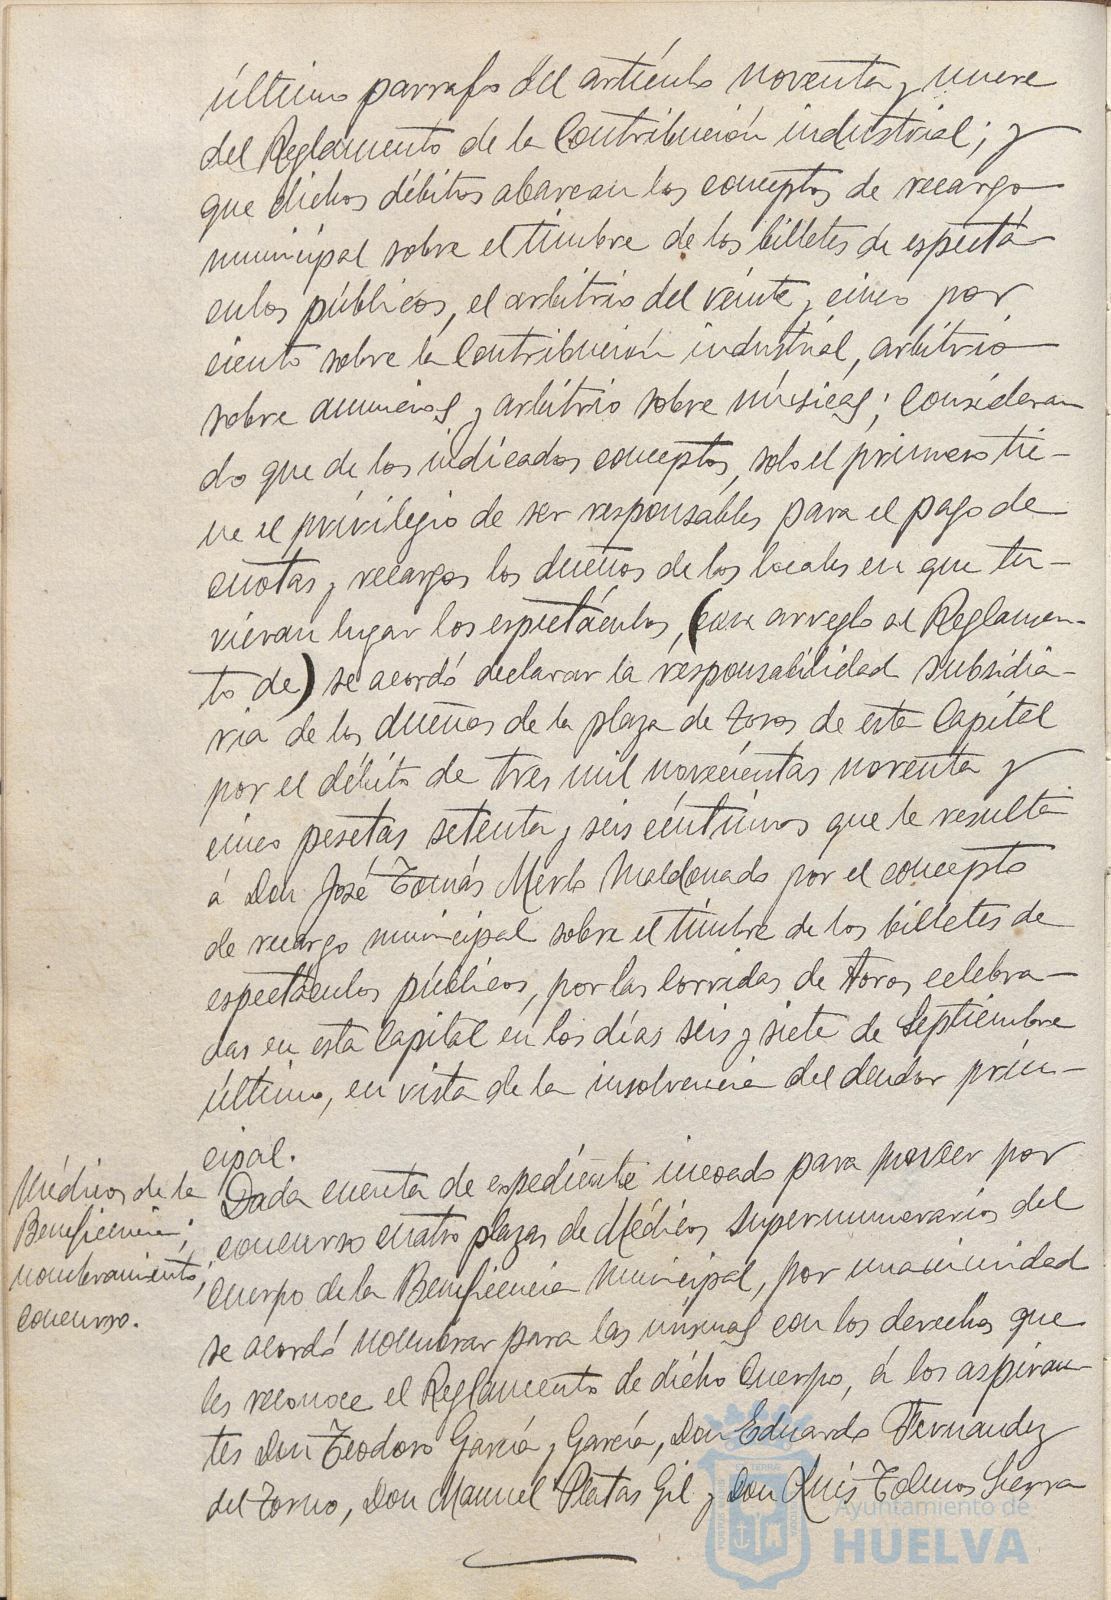 último parrafo del artículo noventa y nueve
del Reglamento de la Contribución industrial; y
que dichos débitos abarcan los conceptos de recargo
municipal sobre el timbre de los billetes de espectá-
culos públicos, el arbitrio del veinte y cinco por
ciento sobre la Contribución industrial, arbitrio
sobre anuncios y arbitrio sobre músicas; consideran
do que de los indicados conceptos, solo el primero tie-
ne el privilegio de ser responsables para el pago de
cuotas y recargos los dueños de los locales en que tu-
vieran lugar los espectáculos, (con arreglo al Reglamen-
to de) se acordó declarar la responsabilidad subsidia-
ria de los dueños de la plaza de toros de esta Capital
por el débito de tres mil novecientas noventa y
cinco pesetas setenta y seis céntimos que le resulta
á Don José Tomás Merlo Maldonado por el concepto
de recargo municipal sobre el timbre de los billetes de
espectáculos públicos, por las corridas de toros celebra-
das en esta Capital en los días seis y siete de Septiembre
último, en vista de la insolvencia del deudor prin-
cipal.
Médicos de la
Beneficencia;
nombramiento;
concurso.
Dada cuenta de expediente incoado para proveer por
concurso cuatro plazas de Médicos supernumerarios del
Cuerpo de la Beneficencia Municipal, por unanimidad
se acordó nombrar para las mismas con los derechos que
les reconoce el Reglamento de dicho Cuerpo, á los aspiran-
tes Don Teodoro García y García, Don Eduardo Fernandez
del Torno, Don Manuel Platas Gil y Don Luis Sierra
Ayuntamiento de
HUELVA